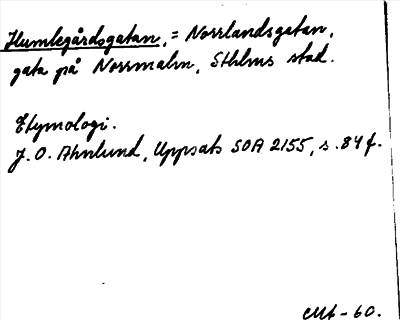 Humlegårdsgatan, = Norrlandsgatan,
gata på Norrmalm, Sthlms stad.
Etymologi.
J. O. Ahnlund, Uppsats SOA 2155, s. 84 f.
-60.